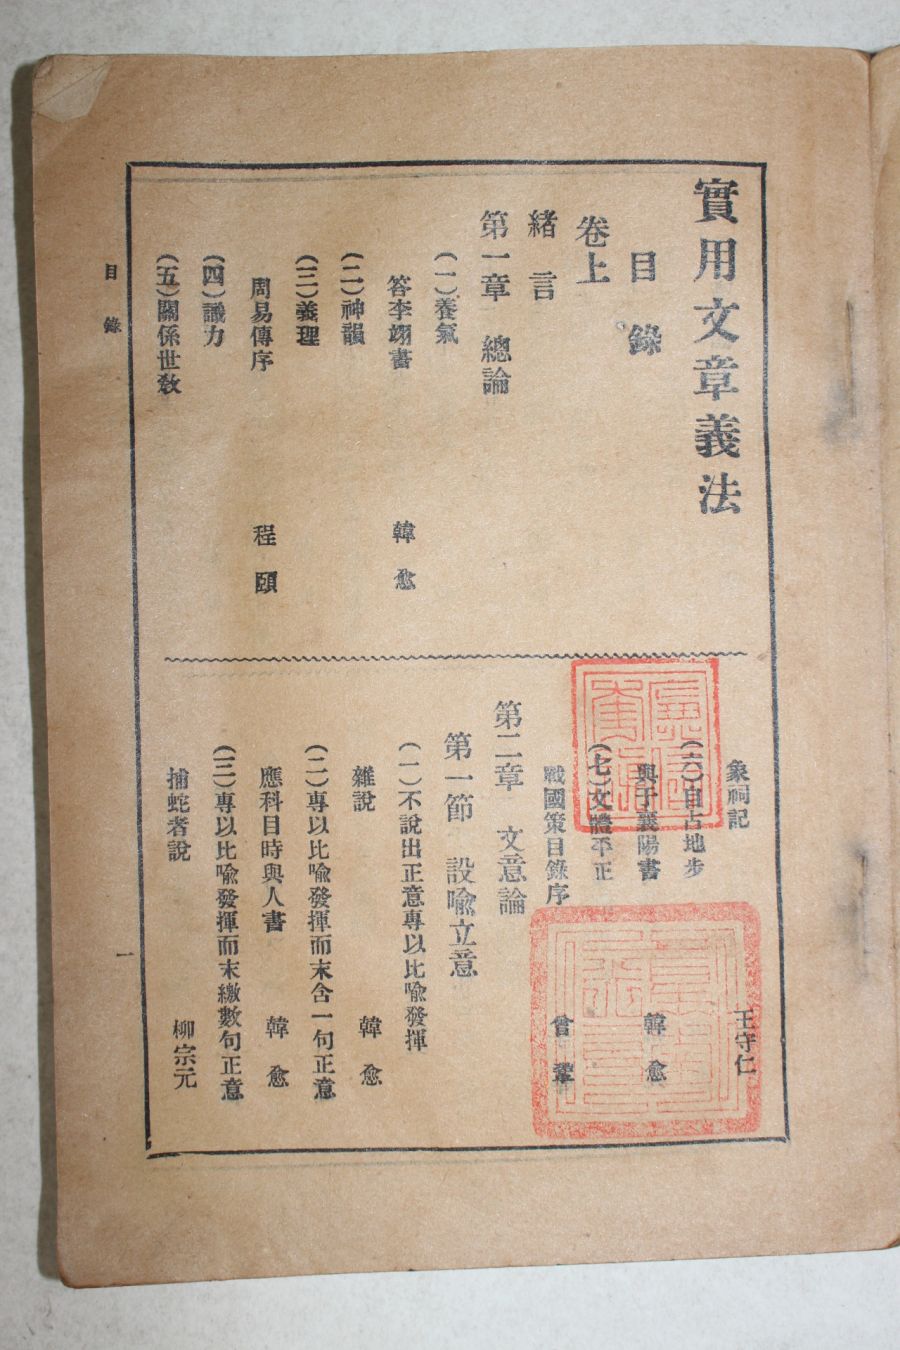 實用文章義法
目錄
卷上
緒言
第一章 總論
(一)養氣
答李翊書 韓愈
(二)神韻
(三)義理
周易傳序 程頤
(四)議力
(五)關係世敎
象祠記 王守仁
(六)自占地步
與于襄陽書 韓愈
(七)文體平正
戰國策目錄序 曾鞏
第二章 文意論
第一節 設喩立意
(一)不說出正意專以比喩發揮
雜說 韓愈
(二)專以比喩發揮而末含一句正意
應科目時與人書 韓愈
(三)專以比喩發揮而末繳數句正意
捕蛇者說 柳宗元
目錄
一